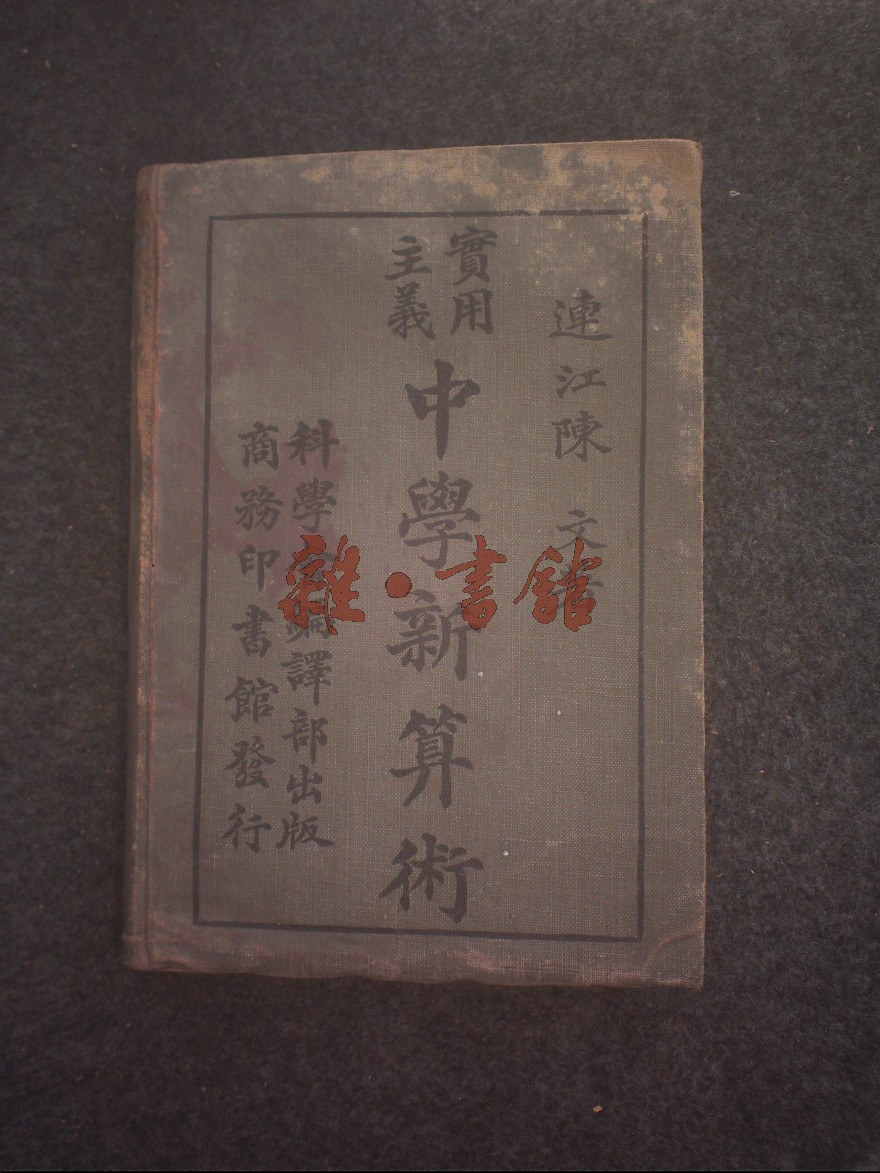 連江陳文著
實用
主義
中學新算術
科學會編譯部出版
商務印書館發行
雜·書館